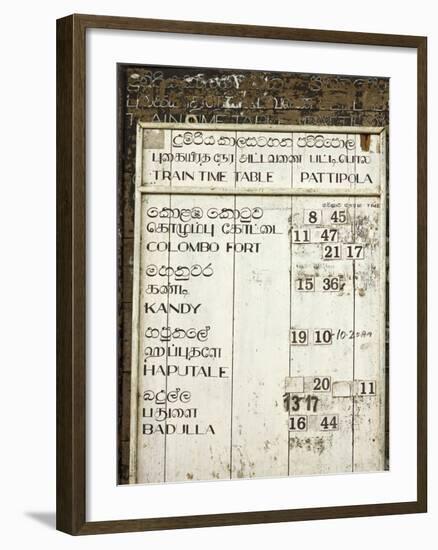 TRAIN TIME TABLE PATTIPOLA
දුම්රිය කාලසටහන පට්ටිපොල
புகையிரத நேர அட்டவணை பட்டிபொல
TRAIN TIME TABLE PATTIPOLA
TIME
කොළඹ කොටුව 8 45
கொழும்பு கோட்டை 11 47
COLOMBO FORT 21 17
මහනුවර
கண்டி 15 36
KANDY
හපුතලේ 19 10
ஹப்புதளே
HAPUTALE
බදුල්ල 20 11
பதுளை 13 17
BADULLA 16 44